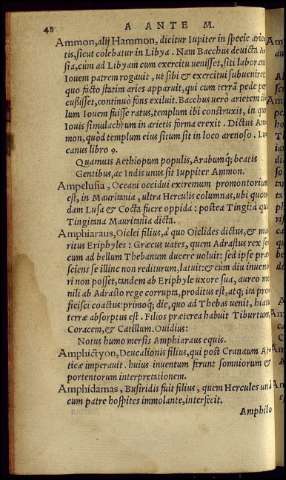 48 A ANTE M.
Ammon, alij Hammon, dicitur Iupiter in specie arie
tis, sicut colebatur in Libya. Nam Bacchus deuicta A
sia, cùm ad Libyam cum exercitu uenisset, siti laborans
Iouem patrem rogauit, ut sibi & exercitui subueniret
quo facto statim aries apparuit, qui cum terrã pede per
cußisset, continuò fons exiluit. Bacchus uero arietem
lum Iouem fuisse ratus, templum ibi construxit, in quo
Iouis simulachrum in arietis forma erexit. Dictus Am
mon, quòd templum eius situm sit in loco arenoso. Lu
canus libro 9.
Quamuis Aethiopum populis, Arabumq; beatis
Gentibus, ac Indis unus sit Iuppiter Ammon.
Ampelusia, Oceani occidui extremum promontorium
est, in Mauritania, ultra Herculis columnas, ubi quon
dam Lusa & Cocta fuere oppida: postea Tingita quæ
Tingitana Mauritania dicta.
Amphiaraus, Oiclei filius, à quo Oiclides dictus, & ma
ritus Eriphyles: Græcus uates, quem Adrastus rex se
cum ad bellum Thebanum ducere uoluit: sed ipse præ
sciens se illinc non rediturum, latuit: & cum diu inueni
ri non posset, tandem ab Eriphyle uxore sua, aureo mo
nili ab Adrasto rege corrupta, proditus est, atq; ita pro
ficisci coactus: primoq; die, quo ad Thebas uenit, hiatu
terræ absorptus est. Filios præterea habuit Tiburtum
Coracem, & Catillum. Ouidius:
Notus humo mersis Amphiaraus equis.
Amphictyon, Deucalionis filius, qui post Cranaum At
ticæ imperauit. huius inuentum ferunt somniorum &
portentorum interpretationem.
Amphidamas, Busiridis fuit filius, quem Hercules unà
cum patre hospites immolante, interfecit.
Amphilo